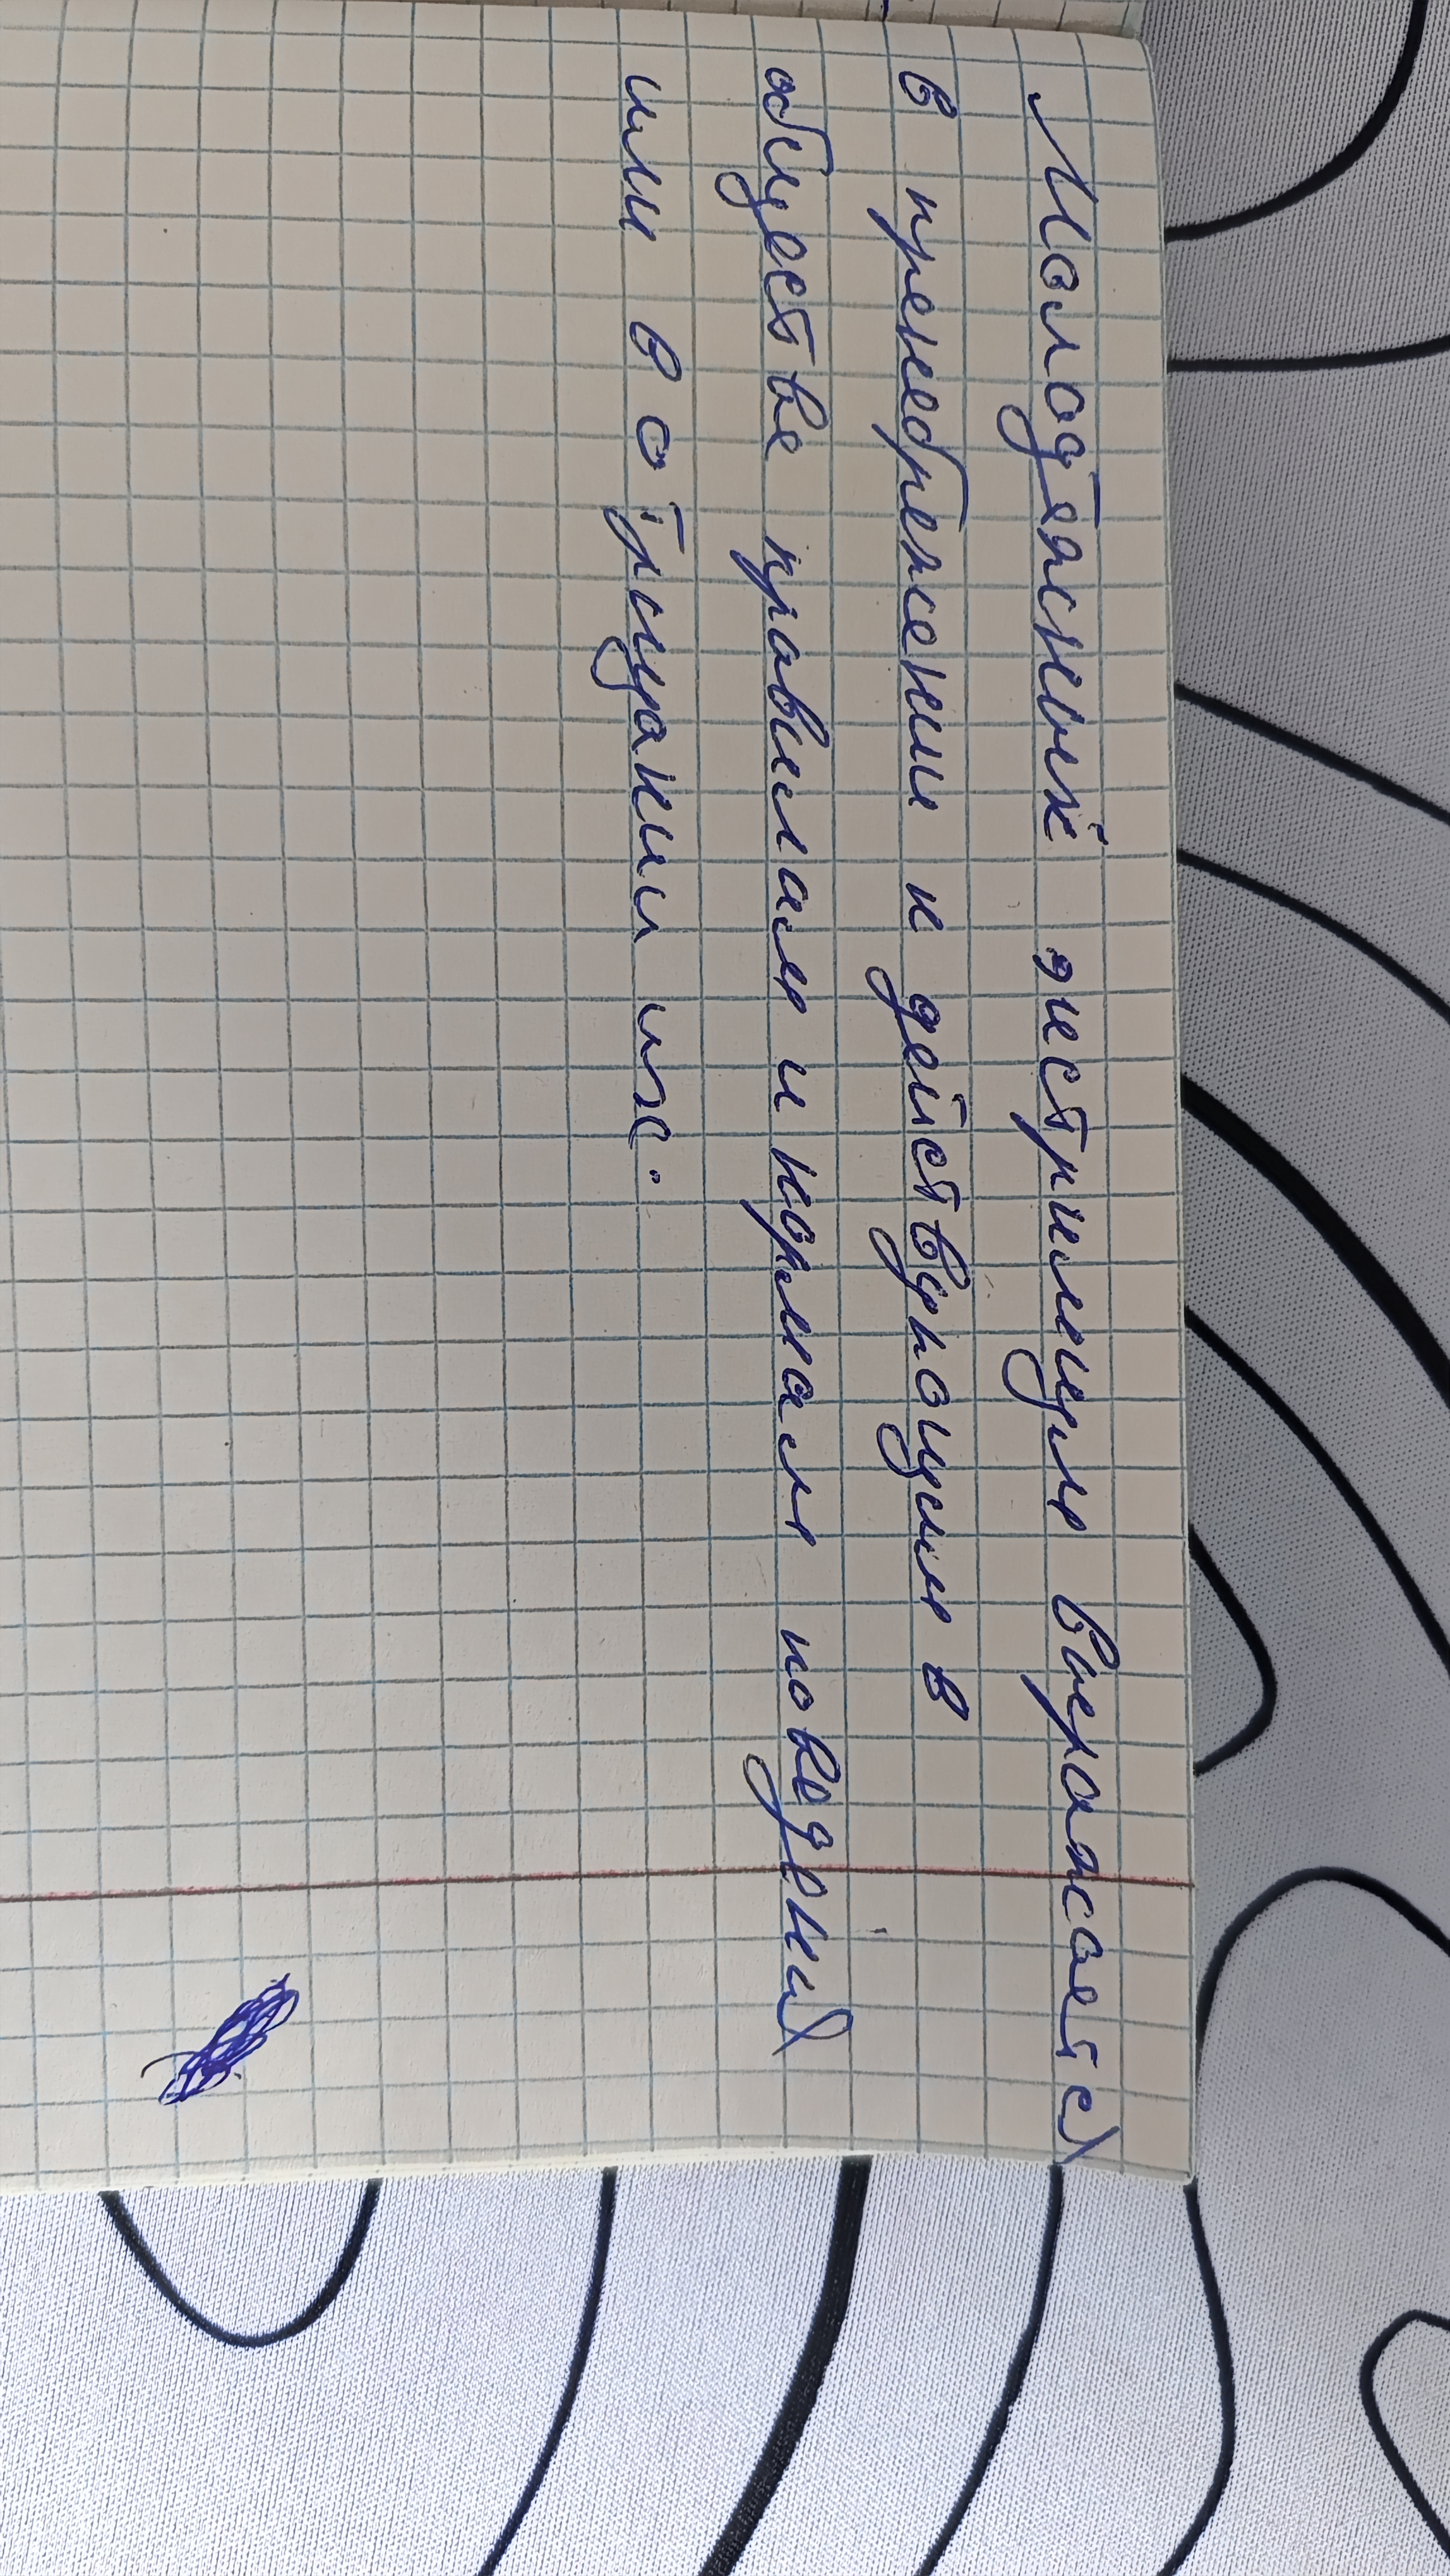 Молодёжный экстримизм выражается
в пренебрежении к действующим в
обществе правилам и нормам поведения
или в отрицании их.